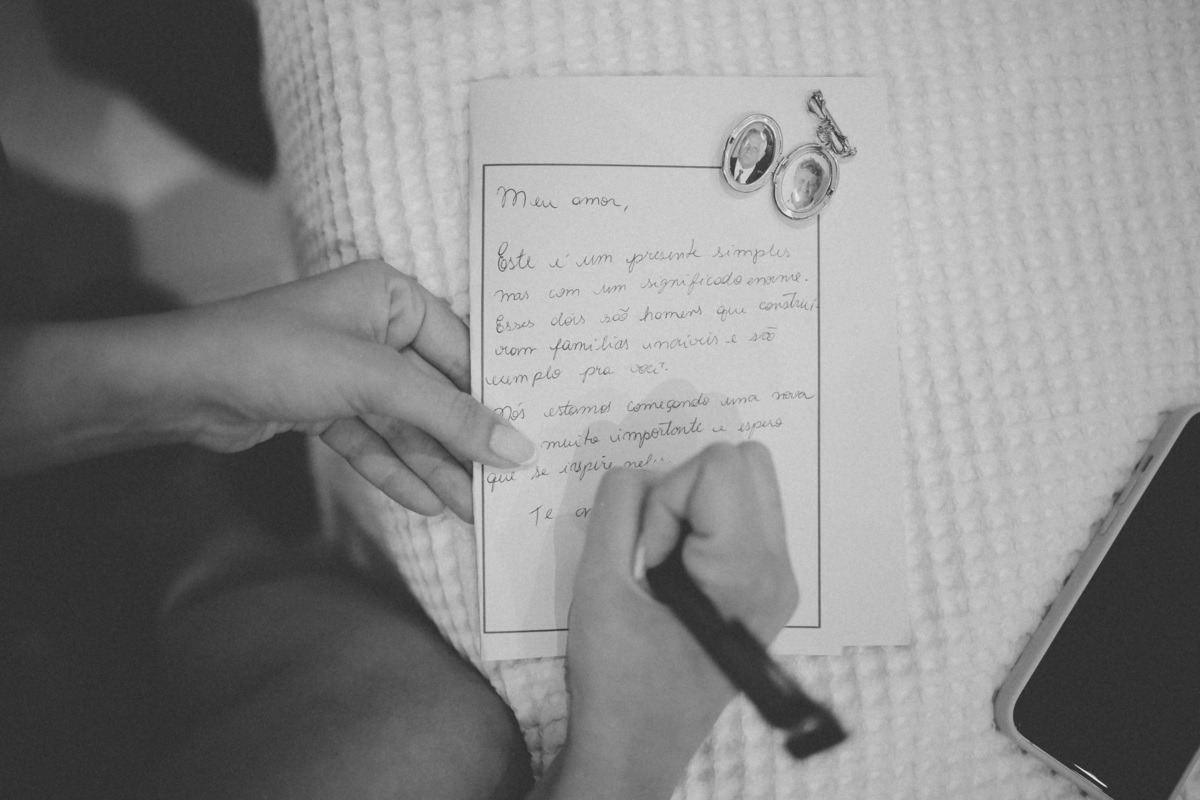 Meu amor,
Este é um presente simples
mas com um significado enorme.
Esses dois são homens que construí-
ram famílias incríveis e são
exemplo pra você.
Nós estamos começando uma nova
muito importante e espero
que se inspire
Te